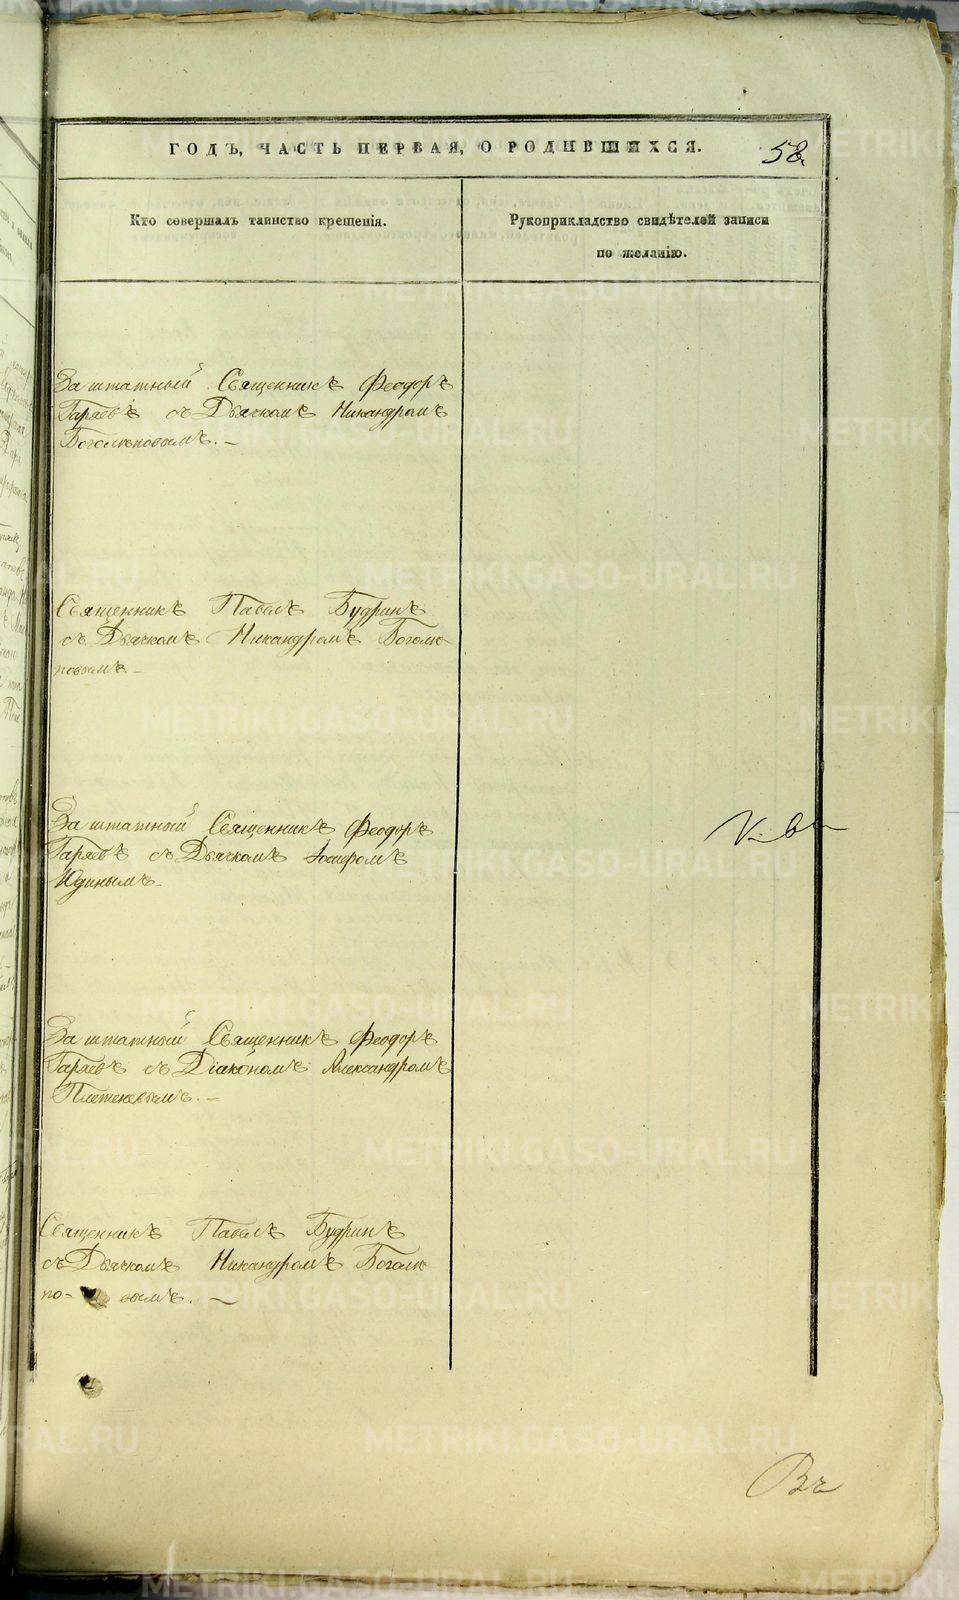 ГОДЪ, ЧАСТЬ ПЕРВАЯ, О РОДИВШИХСЯ. 58.
Кто совершалъ таинство крещенія.
Рукоприкладство свидѣтелей записи
по желанію.
Заштатный Священникъ Феодоръ
Гаряевъ съ Дьячкомъ Никандромъ
Боголеповымъ. —
Священникъ Павелъ Будринъ
съ Дьячкомъ Никандромъ Боголе
повымъ —
Заштатный Священникъ Феодоръ
Гаряевъ съ Дьячкомъ
Юдинымъ
Заштатный Священникъ Феодоръ
Гаряевъ съ Діакономъ Александромъ
Плетеневымъ. —
Священникъ Павелъ Будринъ
съ Дьячкомъ Никандромъ Боголе
по- вымъ. —
METRIKI.GASO-URAL.RU